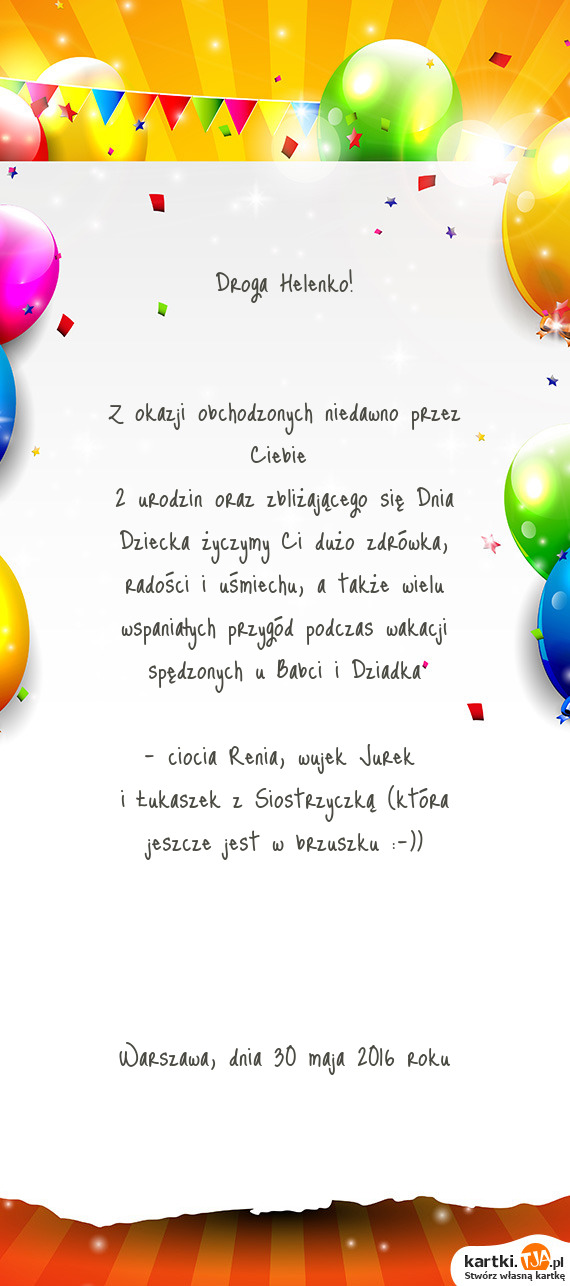 Droga Helenko!
Z okazji obchodzonych niedawno przez
Ciebie
2 urodzin oraz zbliżającego się Dnia
Dziecka życzymy Ci dużo zdrówka,
radości i uśmiechu, a także wielu
wspaniałych przygód podczas wakacji
spędzonych u Babci i Dziadka
- ciocia Renia, wujek Jurek
i Łukaszek z Siostrzyczką (która
jeszcze jest w brzuszku :-))
Warszawa, dnia 30 maja 2016 roku
kartki.TJA.pl
Stwórz własną kartkę